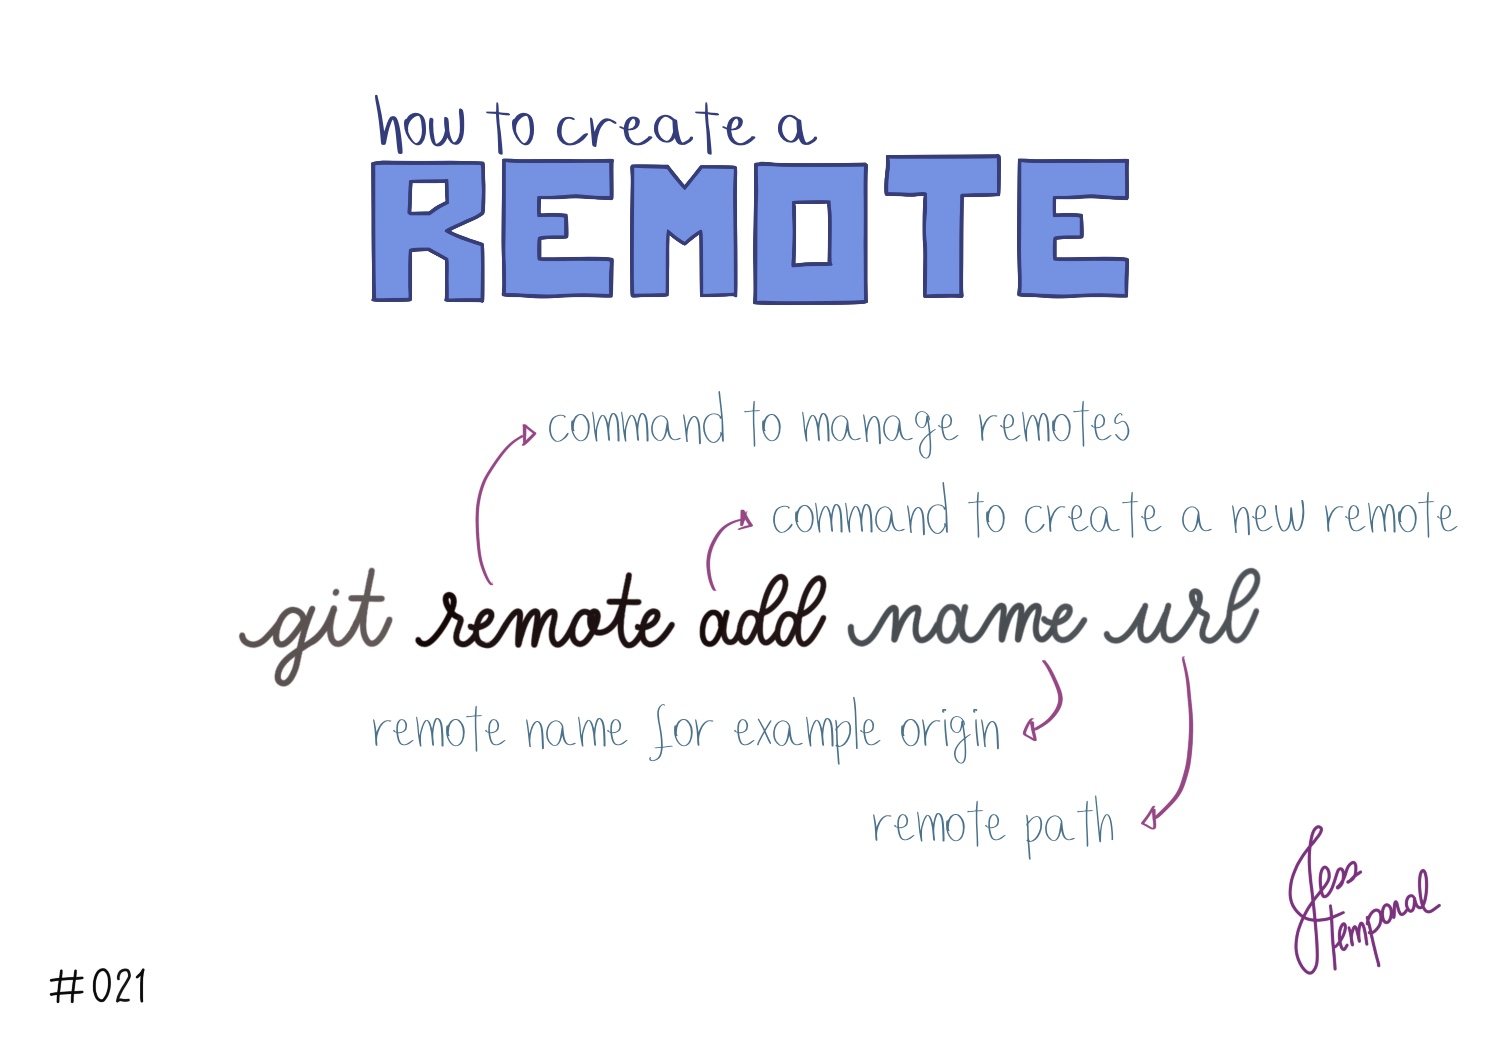 how to create a
REMOTE
command to manage remotes
command to create a new remote
git remote add name url
remote name for example origin
remote path
Jess
temporal
#021